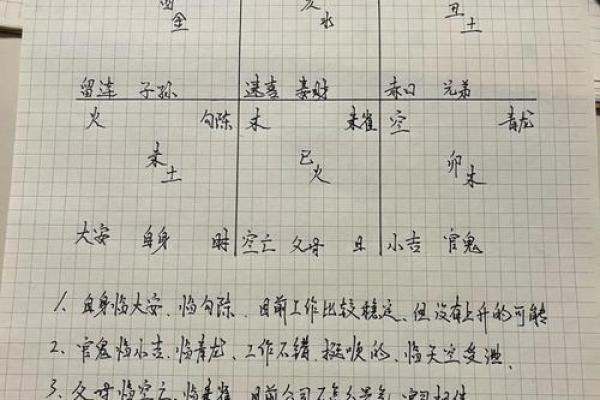 酉 亥 丑
金 水 土
留连 子孙 速喜 妻财 赤口 兄弟
火 勾陈 木 朱雀 空 青龙
未 巳 卯
土 火 木
大安 自身 时 空亡 父母 日 小吉 官鬼
1、自身临大安、临勾陈、目前工作比较稳定、但没有上升的可能
2、官鬼临小吉、临青龙、工作不错、挺顺的、临天空受泄、
3、父母临空亡、临朱雀、目前公司不怎么景气